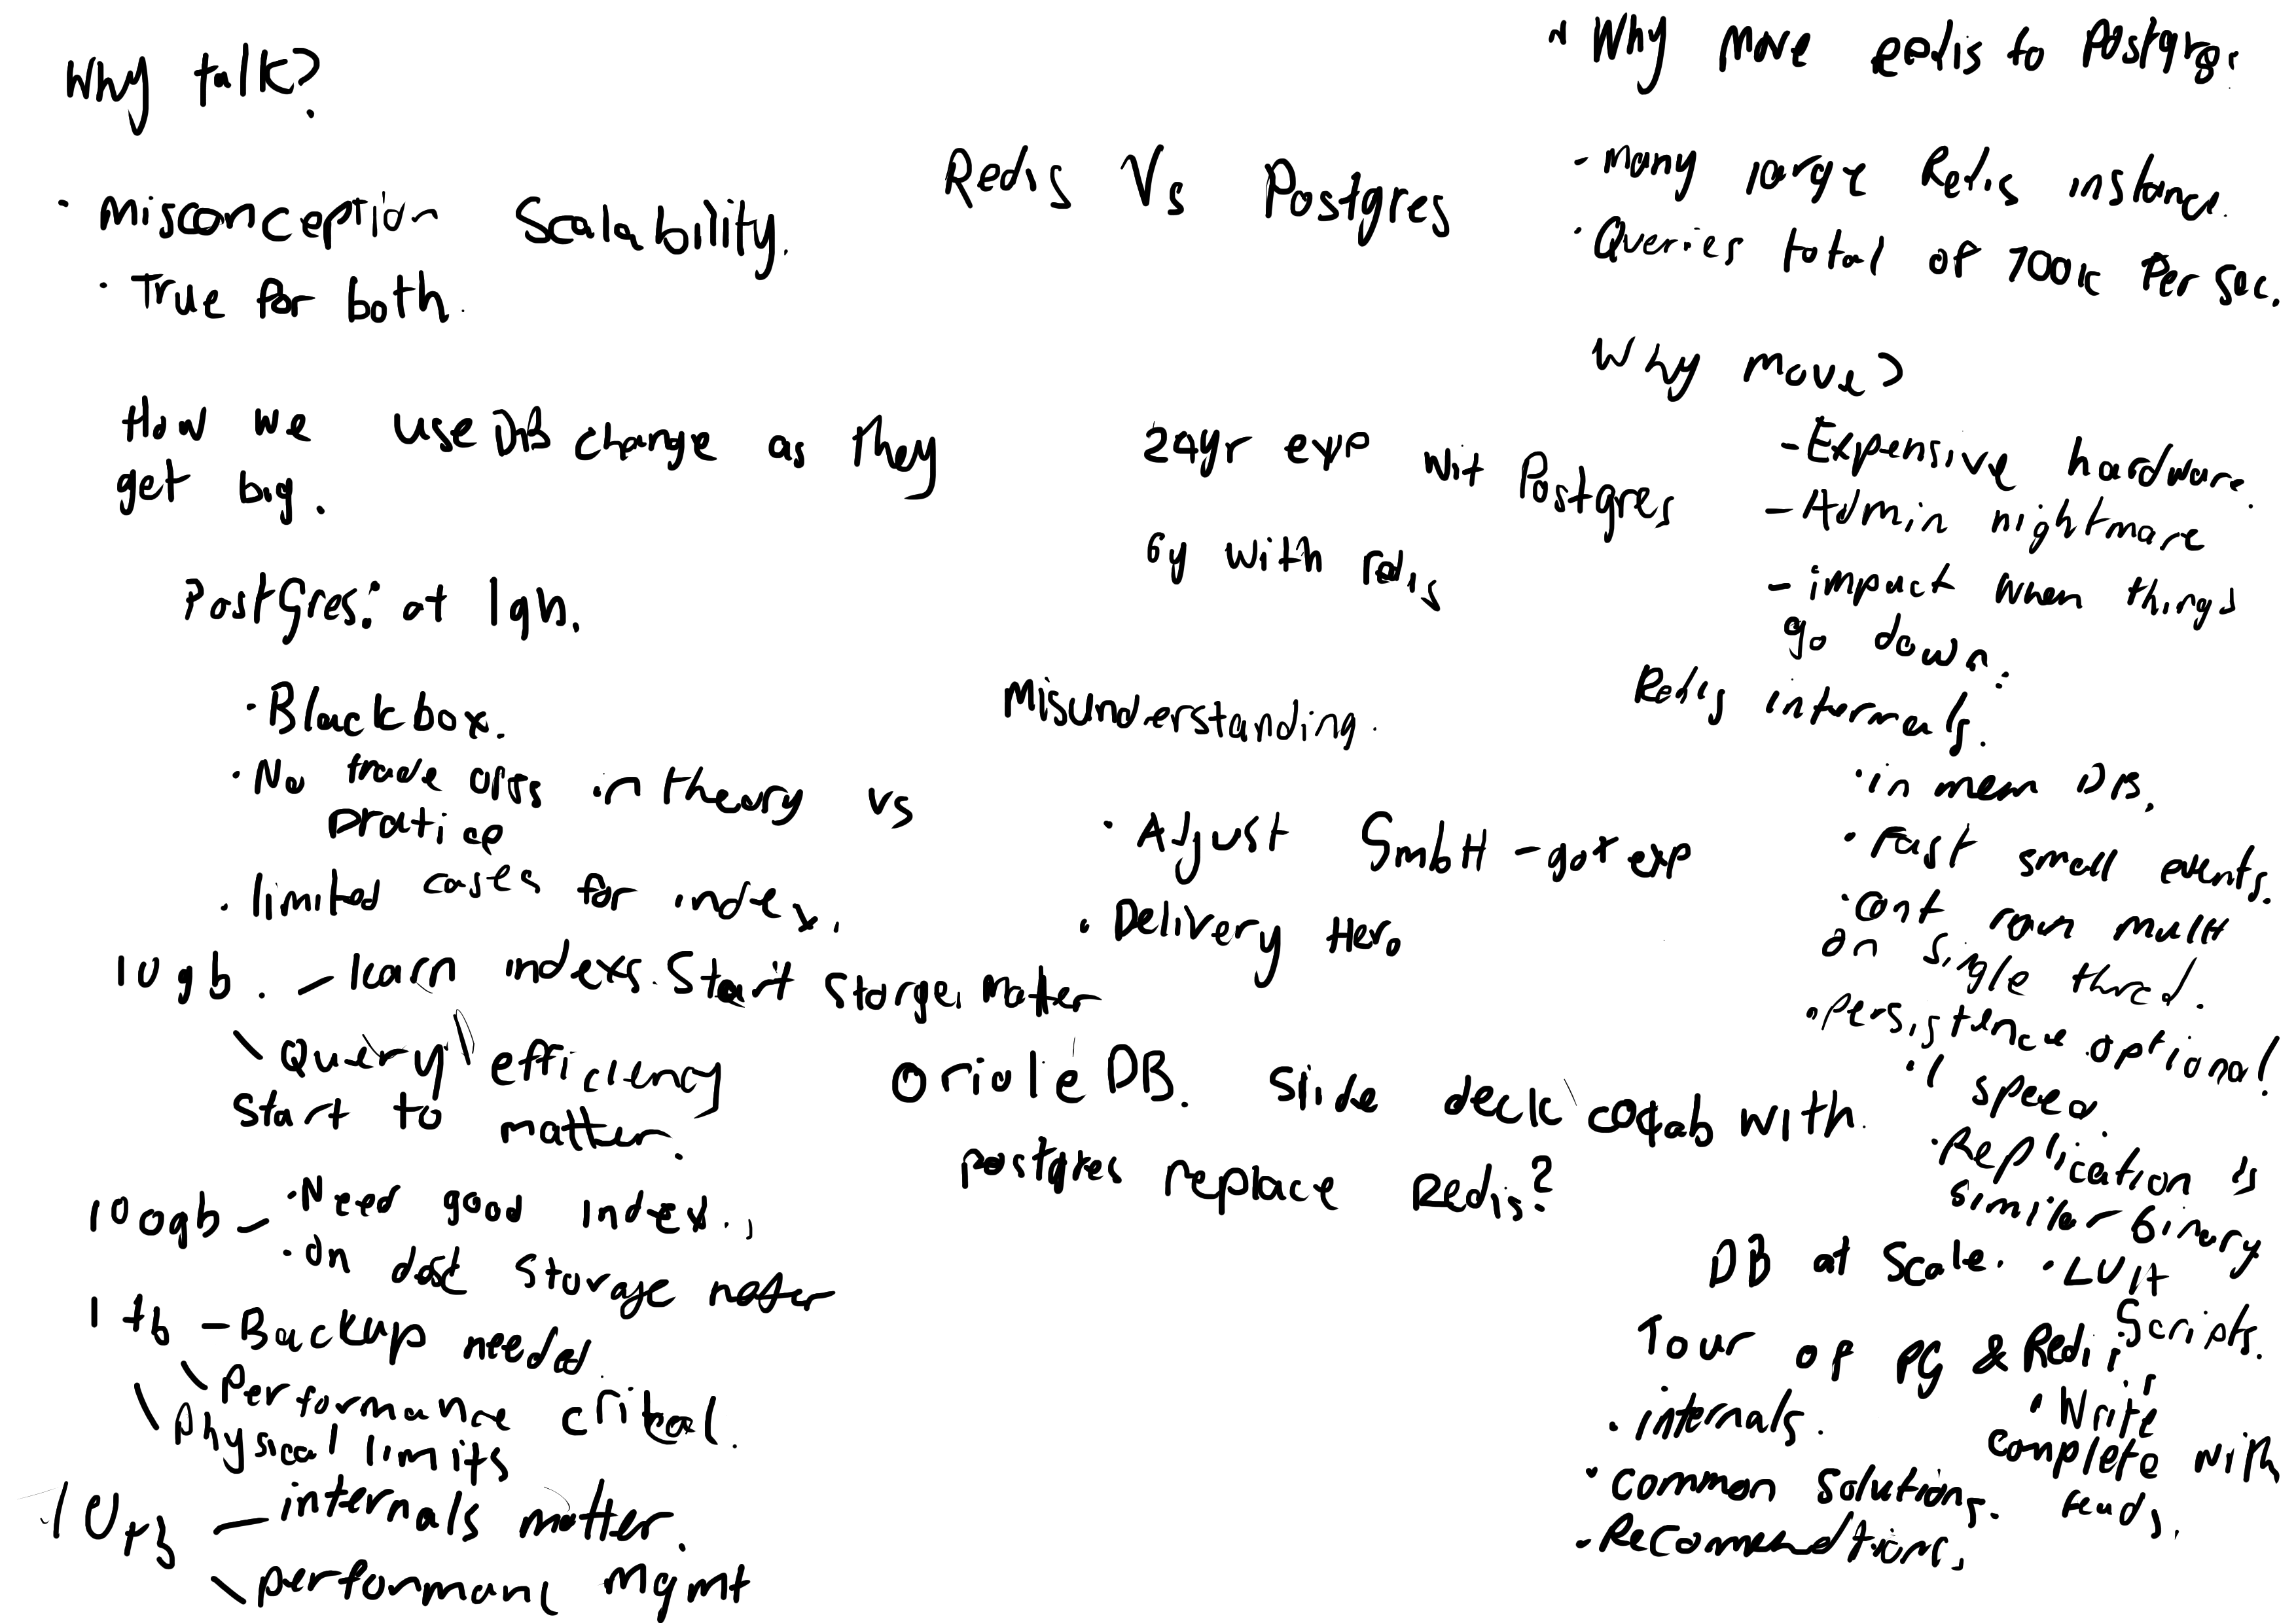 Why talk?
· Misconception Scalability.
· True for both.
How we use DB change as they
get big.
PostGres: at 1gb.
· Black box.
· No trade offs in theory vs
pratice
· limited cases for index.
10gb. – learn indexs. Start storge matter
\ Query efficiency
start to matter.
100gb – · Need good index.
· on dosc storage matter
1 tb – Backup needed.
\ Performance critcal.
\ Physical limits
10tb – internals matter.
\ performanc mgmt
Redis Vs Postgres
24yr exp wit Postgres
6y with redis
Misunderstanding.
· Adjust GmbH – got exp
· Delivery Hero
OrioleDB. Slide deck collab with.
postgres replace Redis?
DB at Scale.
Tour of PG & Redis
· internals.
· common solutions.
· Recomendtions.
Why move redis to Postgres.
- Many large Redis instance.
· Queries total of 700k Per Sec.
Why move?
- Expensive hardware.
- Admin nightmare
- impact when things
go down.
Redis internals.
· in mem DB.
· Fast small events.
· cant run multi
on single thred.
· Persistence optional
speed.
· Replication is
similar binary
· LUA
Scripts.
· Write
complete with
reads.